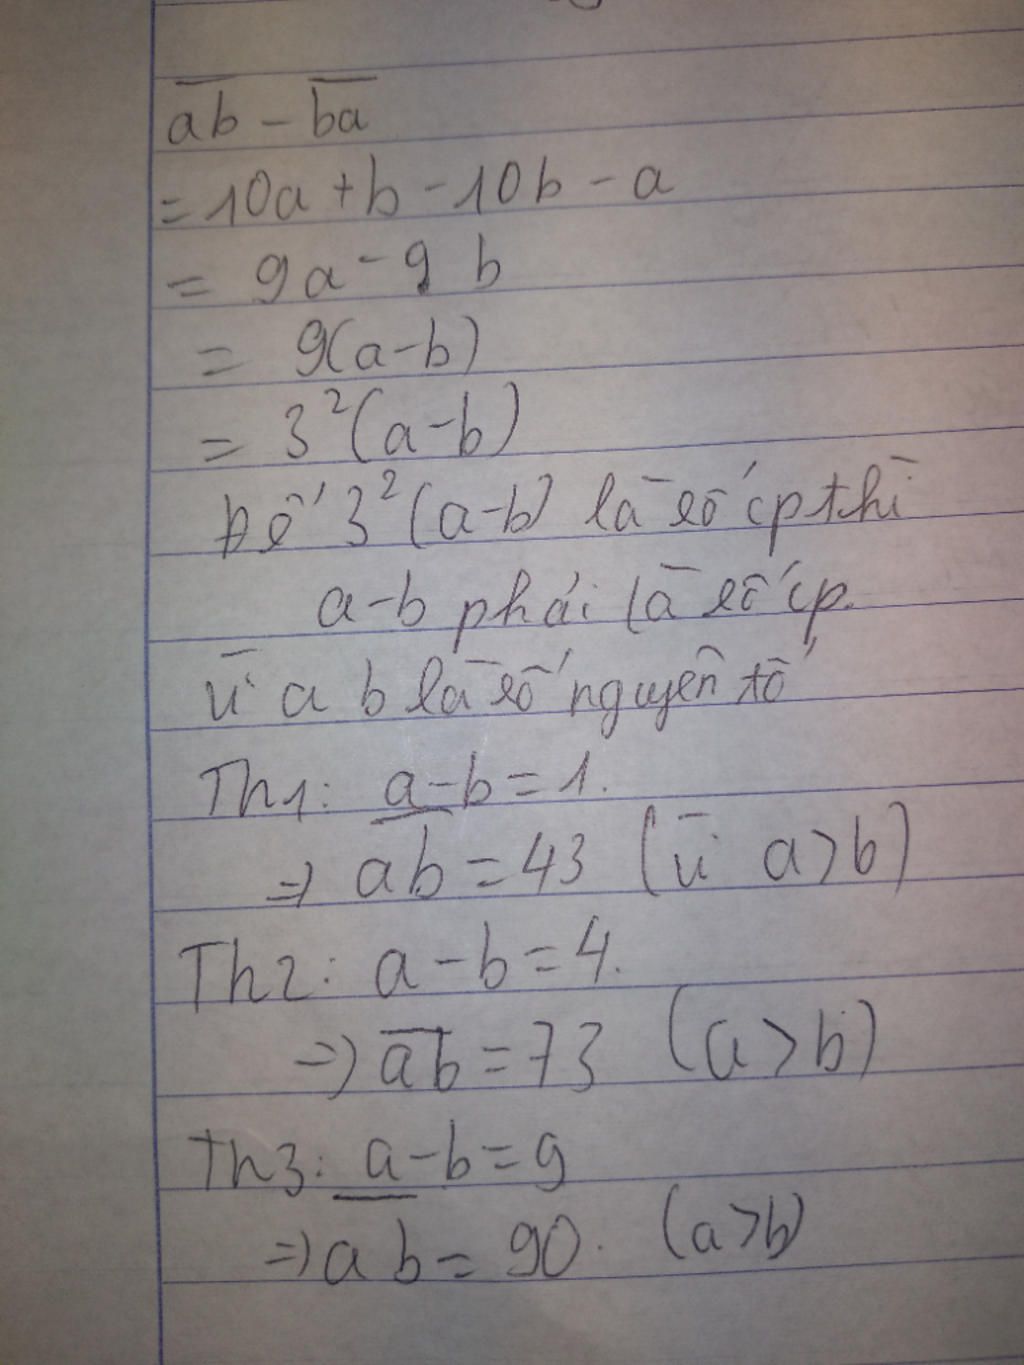 ab̅ - ba̅
= 10a + b - 10b - a
= 9a - 9b
= 9(a-b)
= 3²(a-b)
Để 3²(a-b) là số cp thì
a-b phải là số cp.
vì a b là số nguyên tố
Th1: a-b = 1.
=> ab̅ = 43 (vì a>b)
Th2: a-b = 4.
=> ab̅ = 73 (a>b)
Th3: a-b = 9
=> ab̅ = 90. (a>b)